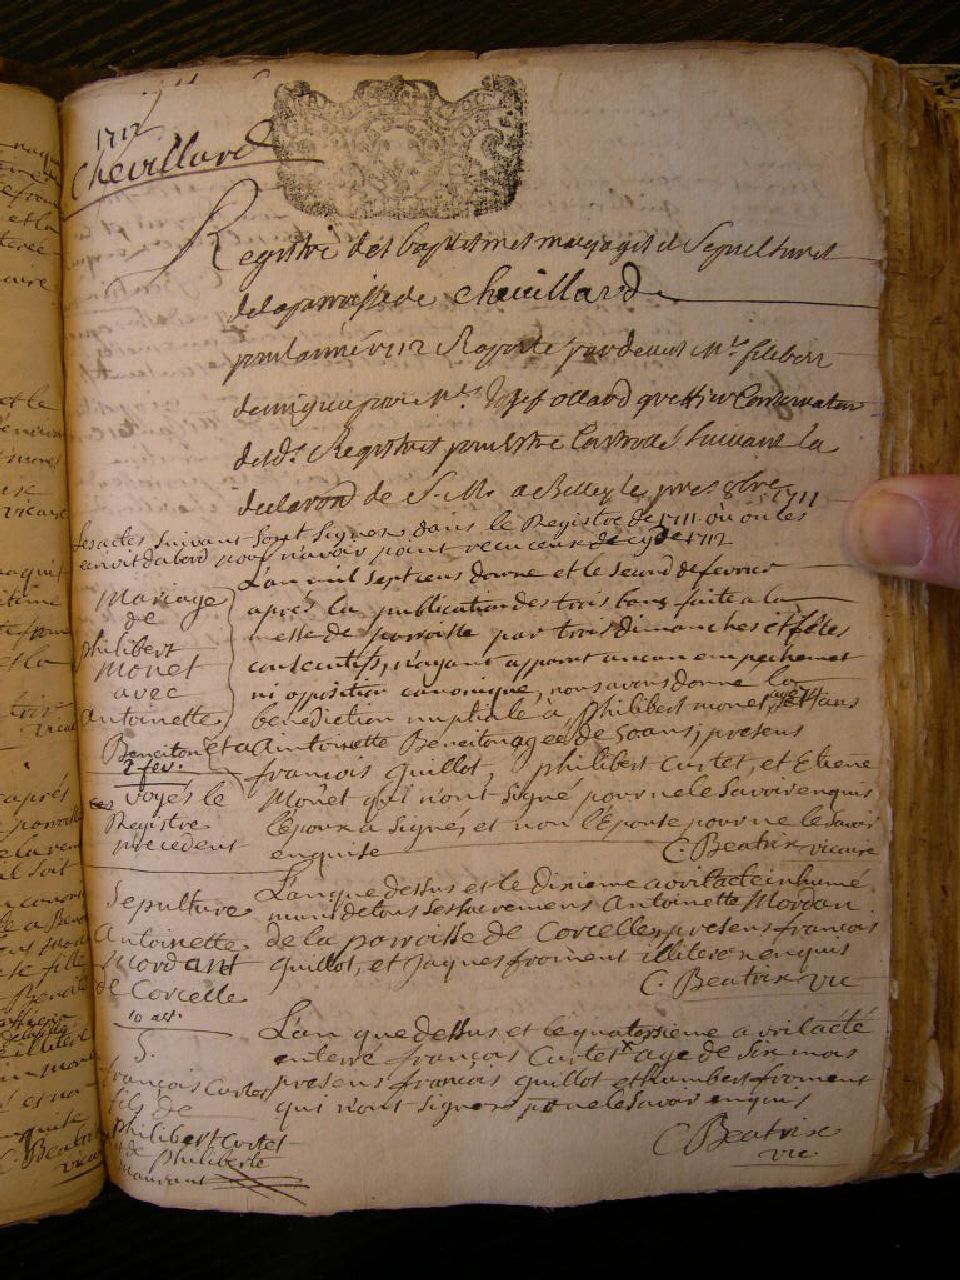 1712
Chevillard
Registre des baptesmes mariages et Sepultures
de la parroisse de Chevillard
pour l'année 1712 Raporté par devant Mr.
par Mr. Josef ollard greffier Conservateur
desds. Registres pour estre Controllés Suivant la
declaron de S. M. a Belley le 8bre 1711
Les actes suivant sont signes dans le Registre de 1711 où on les
ecrivit dabord pour n'avoir point receu ceux de 1712
Mariage
de
philibert
monet
avec
Antoinette
Beneiton
2 fev.
voyés le
Registre
precedent
L'an mil sept cens douze et le second de fevrier
aprés la publication des trois bans faite a la
messe de parroisse par trois dimanches et fêtes
consecutifs, n'ayant apparu aucun empechement
ni opposition canonique, nous avons donne la
benediction nuptiale à philibert monet agé ans
et a Antoinette Beneiton agée de 50 ans, presens
francois Guillot, philibert Curtet, et Etiene
Monet qui n'ont signé pour ne le savoir enquis
l'époux a signé, et non l'Epouse pour ne le savoir
enquise C. Beatrix vicaire
Sepulture
Antoinette
Mordant
de Corcelle
10 avr.
L'an que dessus et le dixieme avril a eté inhumé
muni de tous les sacremens Antoinette Mordan
de la parroisse de Corcelle, presens francois
Guillot, et Jaques froment illiteres enquis
C. Beatrix vic
S.
françois Curtet
fils de
philibert Curtet
et de philiberte
L'an que dessus et le quatorsieme avril a eté
enterré françois Curtet x agé de six mois
presens françois guillot et humbert froment
qui n'ont signer pr ne le savoir enquis
C Beatrix
vic